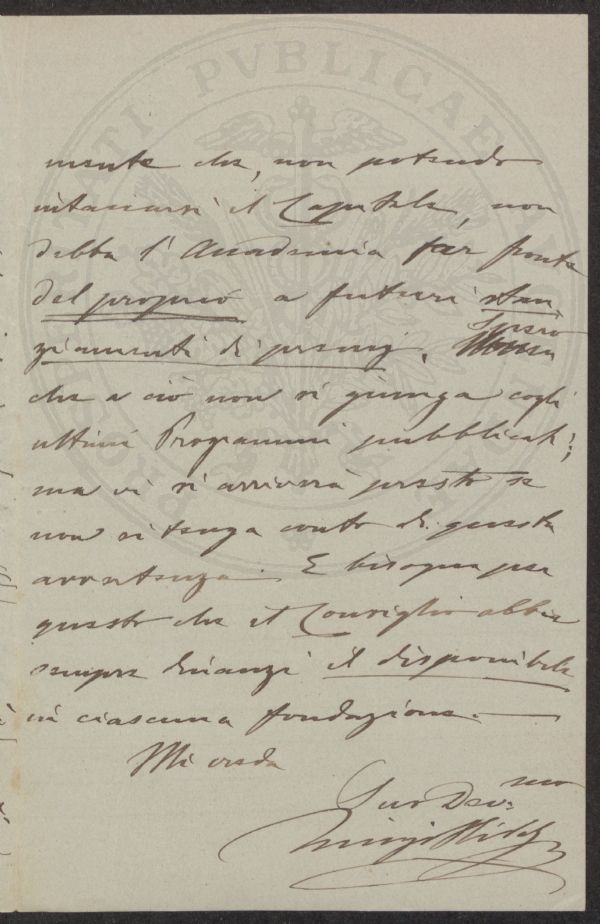 PROSPERITATI PVBLICAE AVGENDAE
mente che, non potendo
intaccarsi il Capitale, non
debba l'Accademia far fronte
del proprio a futuri stan
ziamenti di premj. Spero
che a ciò non si giunga cogli
ultimi Programmi pubblicati;
ma vi si arriverà presto se
non si tenga conto di questa
avvertenza. E bisogna per
questo che il Consiglio abbia
sempre dinanzi il disponibile
in ciascuna fondazione.
Mi creda
Suo Dev.mo
Luigi